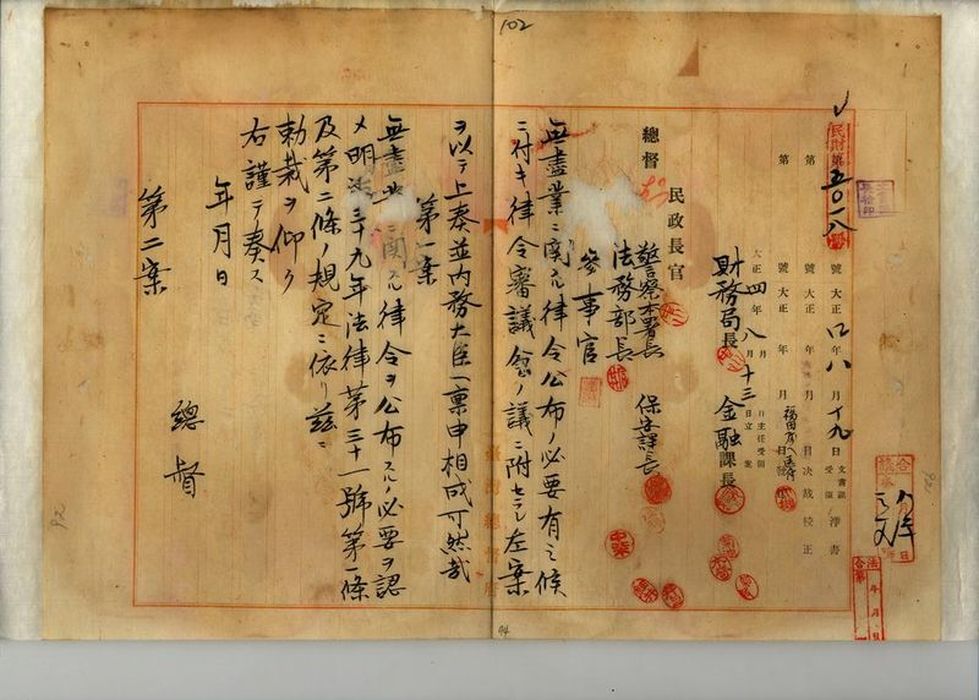 102
民財第五〇一八號 大正四年八月十九日 文書課受領 淨書
第 號 大正 年 月 日決裁 校正
第 號 大正 年 月 日
大正四年八月十三日立案 主任受領
財務局長 金融課長
民政長官 警察本署長 保安課長
總督 法務部長
參事官
無盡業ニ関スル律令公布ノ必要有之候
ニ付キ律令審議会ノ議ニ附セラレ左案
ヲ以テ上奏並内務大臣ヘ稟申相成可然哉
第一案
無盡業ニ関スル律令ヲ公布スルノ必要ヲ認
メ明治三十九年法律第三十一號第一條
及第二條ノ規定ニ依リ茲ニ
勅裁ヲ仰ク
右謹テ奏ス
年月日
總督
第二案
臺灣總督府
94